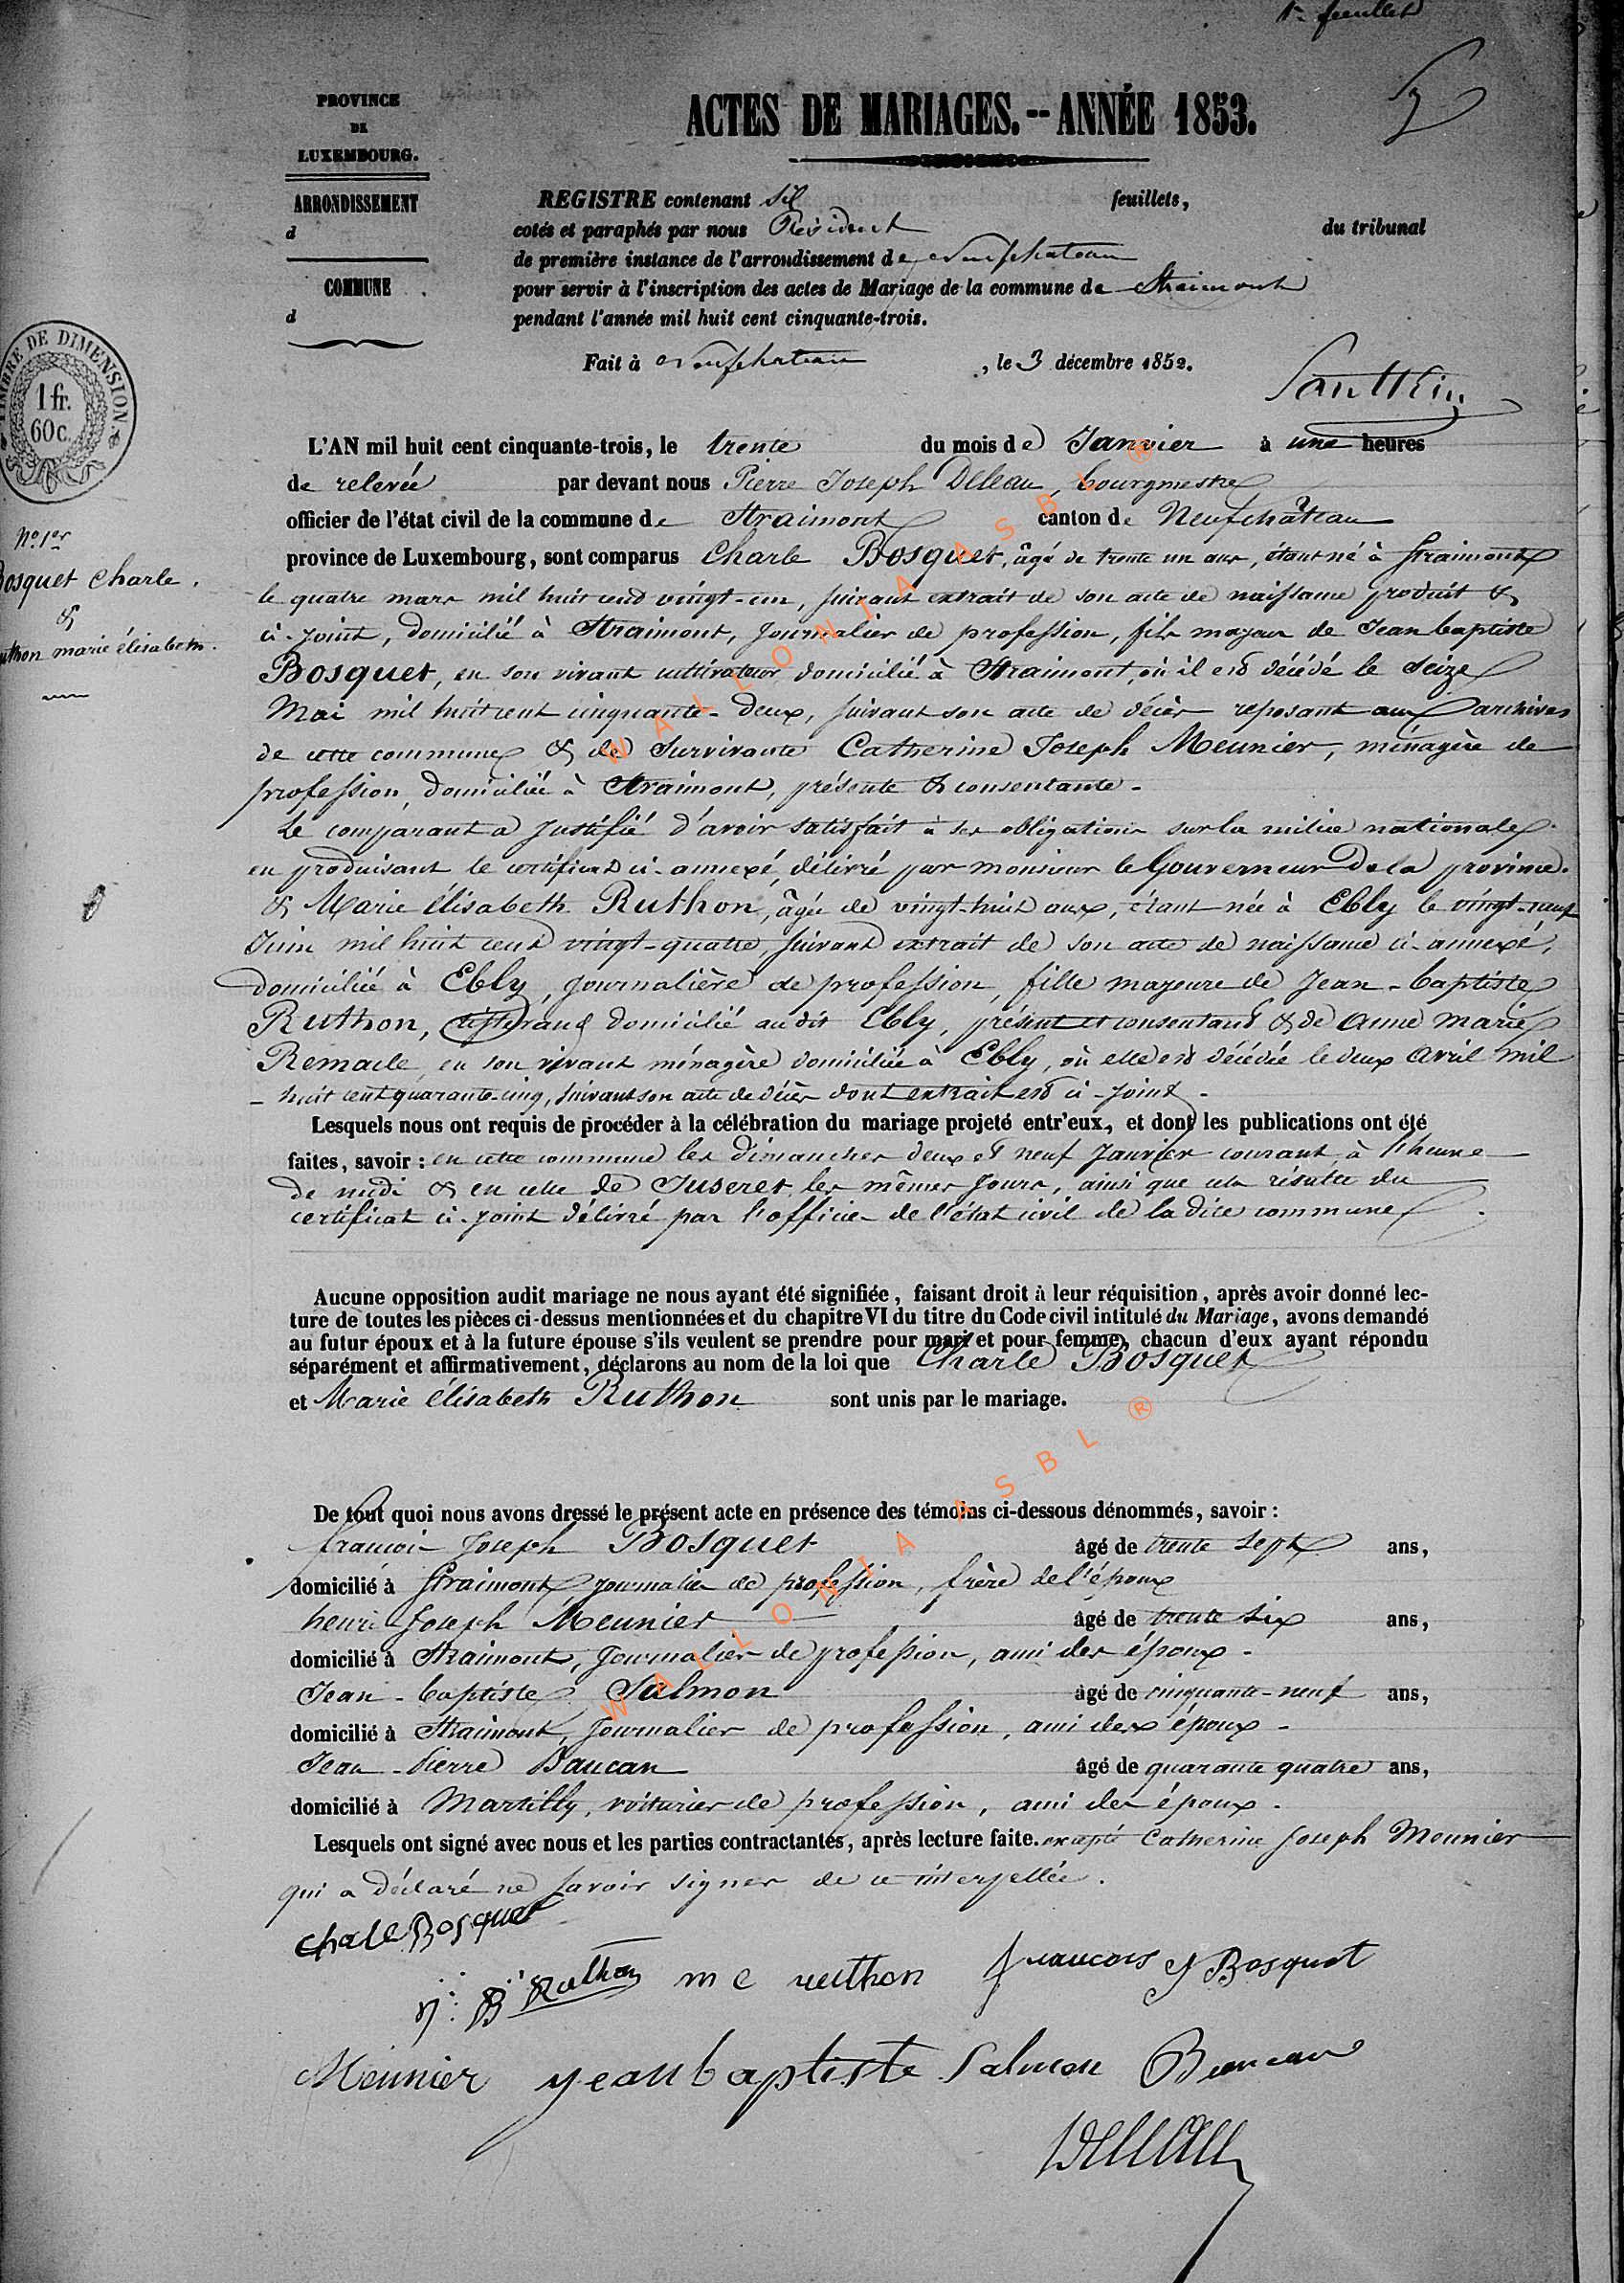 1er feuillet
PROVINCE
DE
LUXEMBOURG.
ACTES DE MARIAGES.--ANNÉE 1853.
ARRONDISSEMENT
d
COMMUNE
d
REGISTRE contenant six feuillets,
cotés et paraphés par nous Président du tribunal
de première instance de l'arrondissement de Neufchateau
pour servir à l'inscription des actes de Mariage de la commune de Straimont
pendant l'année mil huit cent cinquante-trois.
Fait à Neufchateau , le 3 décembre 1852.
TIMBRE DE DIMENSION.
1 fr.
60 c.
N° 1er
Bosquet Charle.
&
Ruthon marie élisabeth.
L'AN mil huit cent cinquante-trois, le trente du mois de Janvier à une heures
de relevée par devant nous Pierre Joseph Delleau, bourgmestre
officier de l'état civil de la commune de Straimont canton de Neufchâteau
province de Luxembourg, sont comparus Charle Bosquet, âgé de trente un ans, étant né à Straimont
le quatre mars mil huit cent vingt-un, suivant extrait de son acte de naissance produit &
ci-joint, domicilié à Straimont, Journalier de profession, fils majeur de Jean baptiste
Bosquet, en son vivant cultivateur domicilié à Straimont, où il est décédé le Seize
Mai mil huit cent cinquante-deux, suivant son acte de décès reposant aux archives
de cette commune & de Survivante Catherine Joseph Meunier, ménagère de
profession, domiciliée à Straimont, présente & consentante.
Le comparant a Justifié d'avoir satisfait à ses obligations sur la milice nationale
en produisant le certificat ci-annexé, délivré par monsieur le Gouverneur de la province.
& Marie élisabeth Ruthon, âgée de vingt-huit ans, étant née à Ebly le vingt-neuf
Juin mil huit cent vingt-quatre, suivant extrait de son acte de naissance ci-annexé,
domiciliée à Ebly, Journalière de profession, fille majeure de Jean-baptiste
Ruthon, tisserand domicilié au dit Ebly, présent et consentant & de Anne Marie
Remacle, en son vivant ménagère domiciliée à Ebly, où elle est décédée le deux Avril mil
huit cent quarante-cinq, suivant son acte de décès dont extrait est ci-joint.
Lesquels nous ont requis de procéder à la célébration du mariage projeté entr'eux, et dont les publications ont été
faites, savoir : en cette commune les dimanches deux et neuf Janvier courant à l'heure
de midi & en celle de Juseret les mêmes Jours, ainsi que cela résulte du
certificat ci-joint délivré par l'officier de l'état civil de la dite commune
Aucune opposition audit mariage ne nous ayant été signifiée, faisant droit à leur réquisition, après avoir donné lec-
ture de toutes les pièces ci-dessus mentionnées et du chapitre VI du titre du Code civil intitulé du Mariage, avons demandé
au futur époux et à la future épouse s'ils veulent se prendre pour mari et pour femme, chacun d'eux ayant répondu
séparément et affirmativement, déclarons au nom de la loi que Charle Bosquet
et Marie élisabeth Ruthon sont unis par le mariage.
De tout quoi nous avons dressé le présent acte en présence des témoins ci-dessous dénommés, savoir :
francois Joseph Bosquet âgé de trente sept ans,
domicilié à Straimont, Journalier de profession, frère de l'époux
henri Joseph Meunier âgé de trente six ans,
domicilié à Straimont, Journalier de profession, ami des époux.
Jean-baptiste Salmon âgé de cinquante-neuf ans,
domicilié à Straimont, Journalier de profession, ami des époux.
Jean-Pierre Baucan âgé de quarante quatre ans,
domicilié à Martilly, voiturier de profession, ami des époux.
Lesquels ont signé avec nous et les parties contractantes, après lecture faite. excepté Catherine Joseph Meunier
qui a déclaré ne savoir signer de ce interpellée.
Chale Bosquet
J: B: Ruthon m e ruthon francois J Bosquet
Meunier yean baptiste Salmon Baucan
Delleau
WALLONIA ASBL ®
WALLONIA ASBL ®